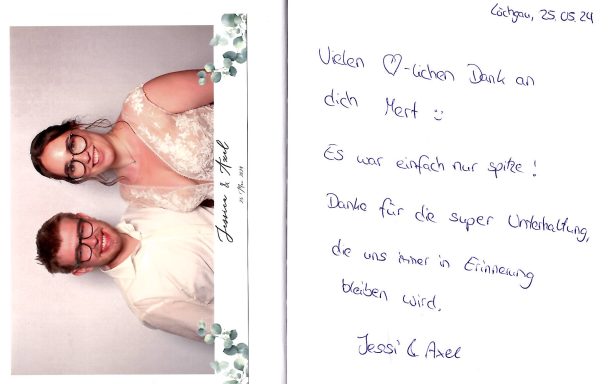 Jessica & Axel
25. Mai 2024
Löchgau, 25.05.24
Vielen ♡-lichen Dank an
dich Mert :)
Es war einfach nur spitze!
Danke für die super Unterhaltung,
die uns immer in Erinnerung
bleiben wird.
Jessi & Axel